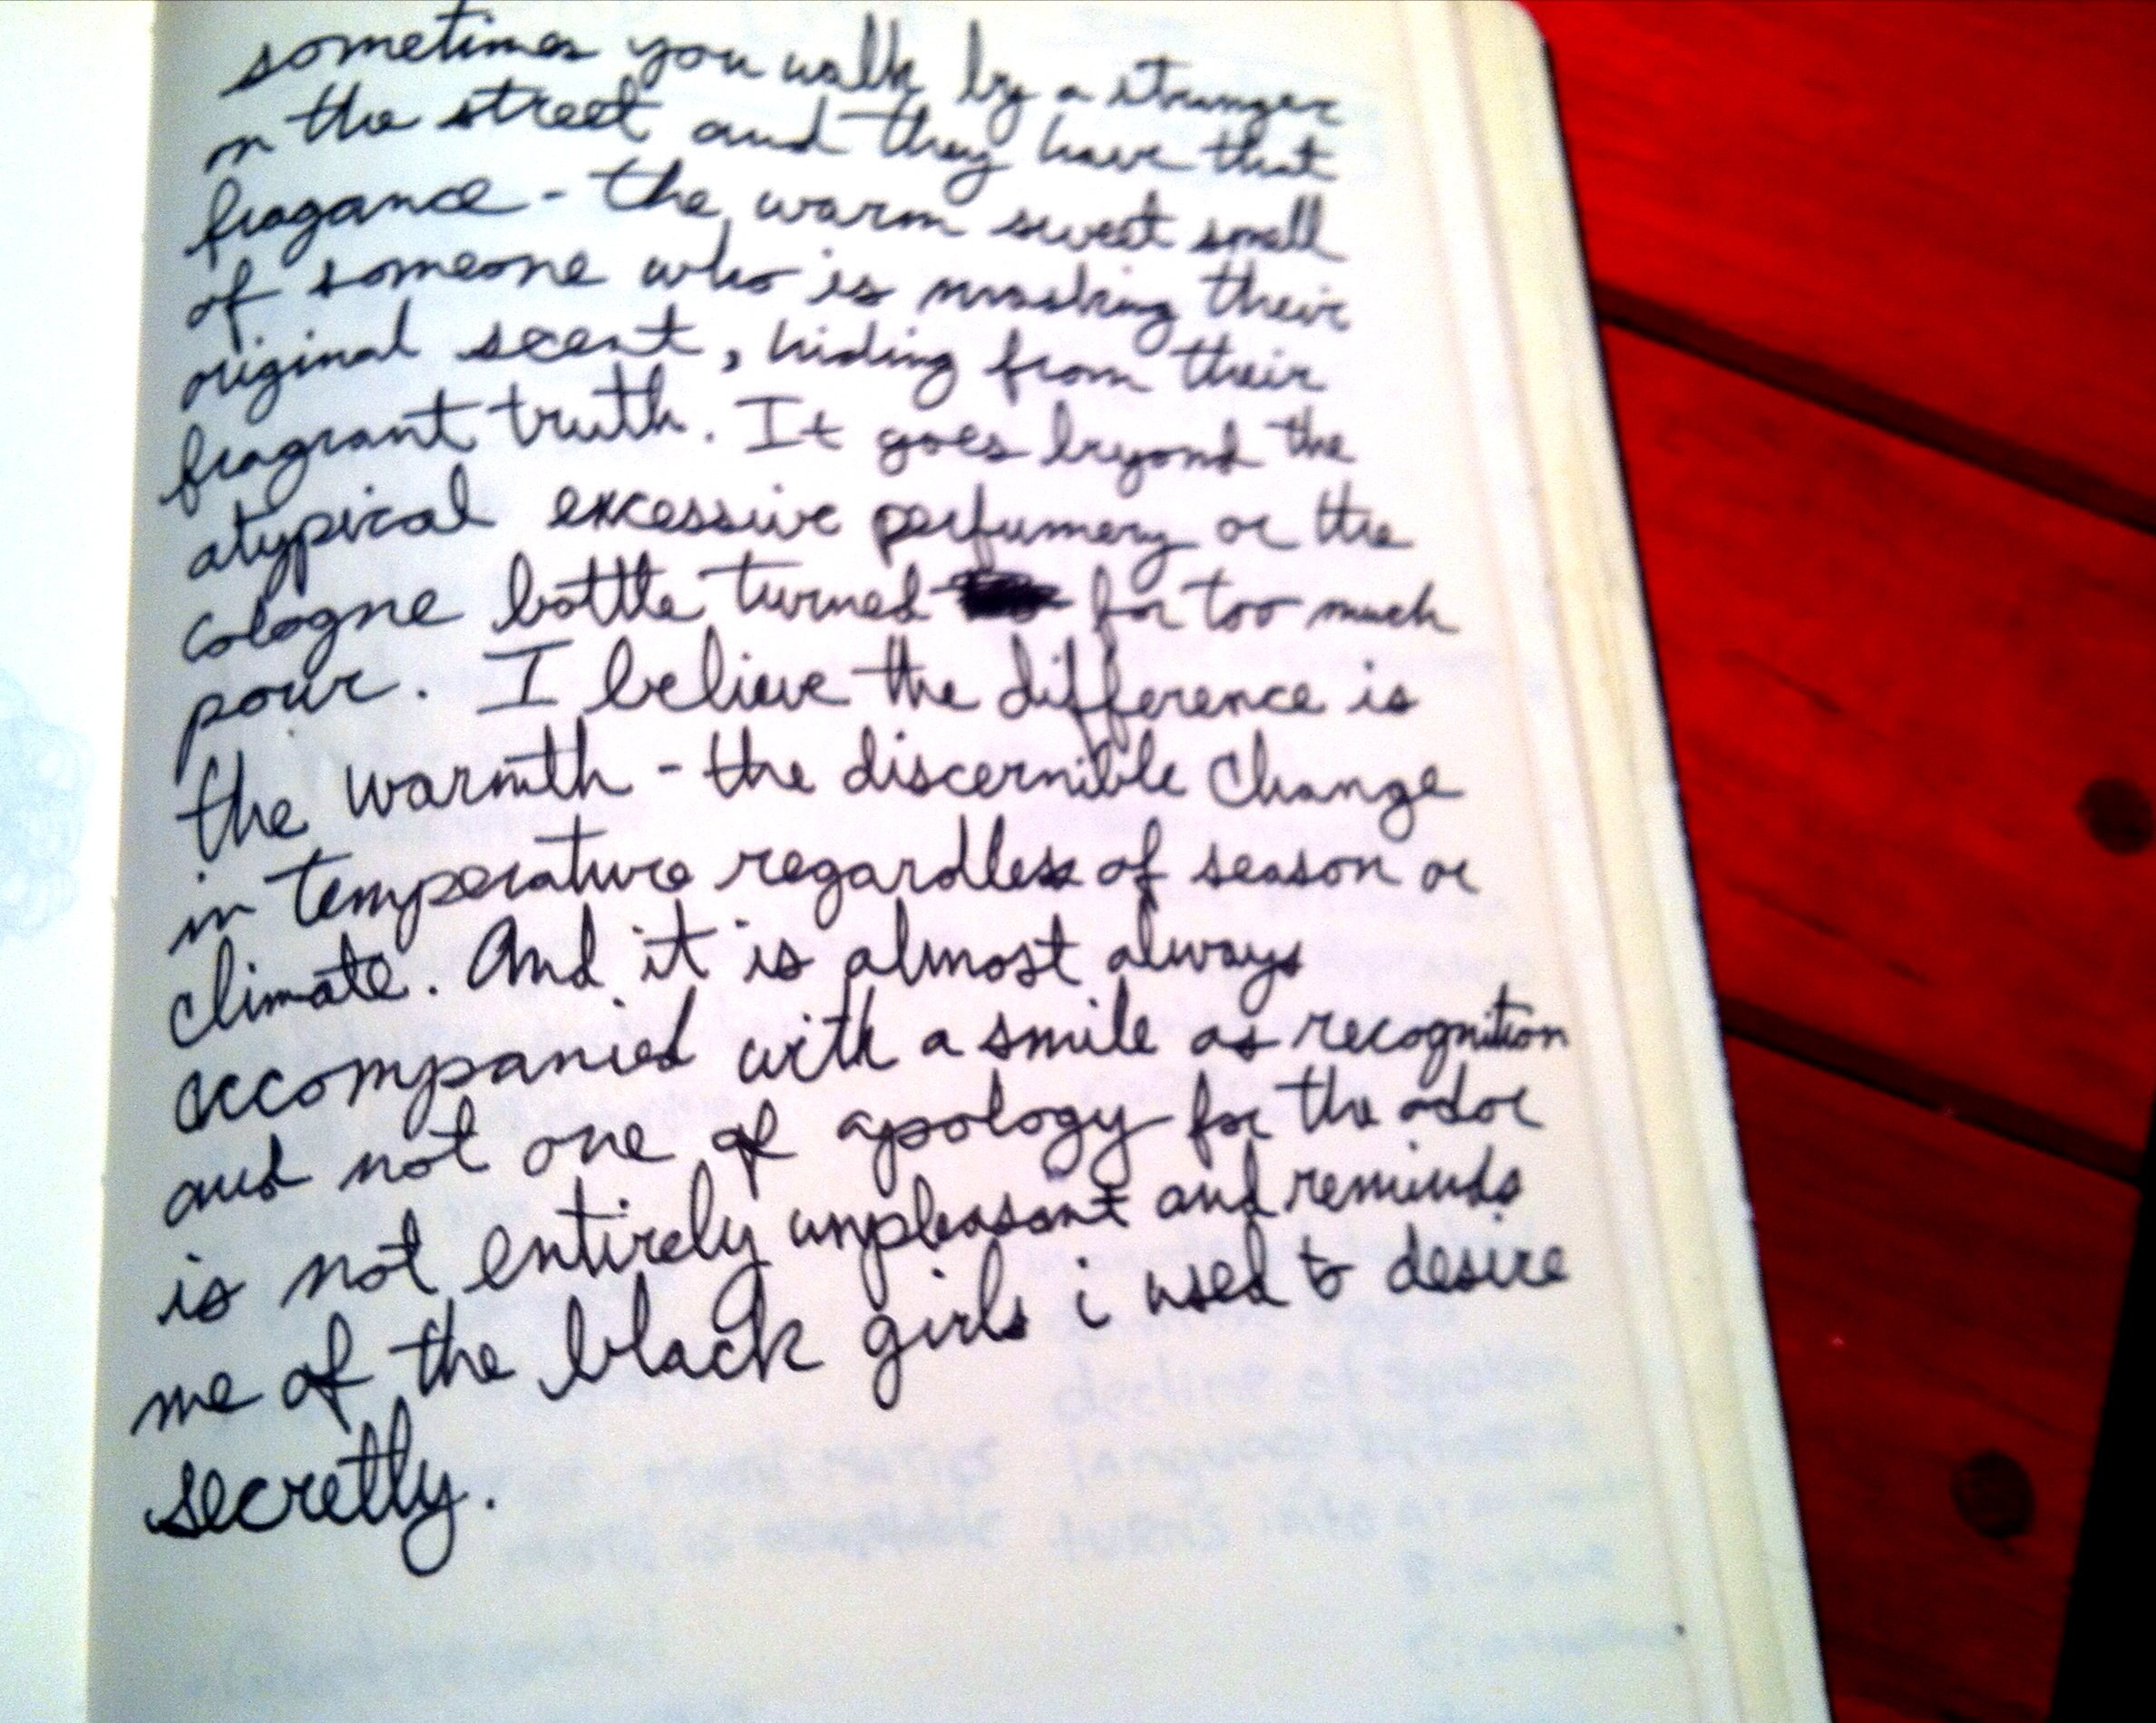 sometimes you walk by a stranger
on the street and they have that
fragance - the warm sweet smell
of someone who is masking their
original scent, hiding from their
fragrant truth. It goes beyond the
atypical excessive perfumery or the
cologne bottle turned for too much
pour. I believe the difference is
the warmth - the discernible change
in temperature regardless of season or
climate. And it is almost always
accompanied with a smile as recognition
and not one of apology for the odor
is not entirely unpleasant and reminds
me of the black girls i used to desire
secretly.